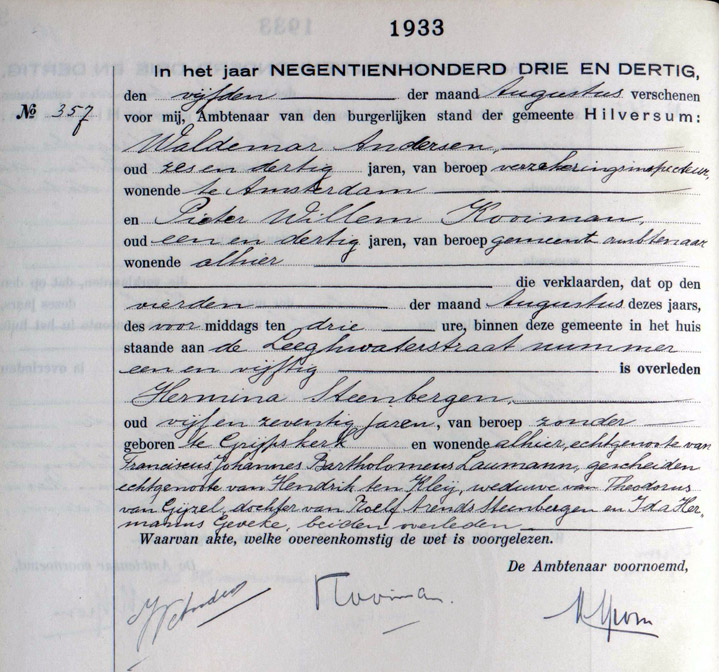 1933
In het jaar NEGENTIENHONDERD DRIE EN DERTIG,
den vijfden der maand Augustus verschenen
№ 357 voor mij, Ambtenaar van den burgerlijken stand der gemeente Hilversum:
Waldemar Andersen,
oud zes en dertig jaren, van beroep verzekeringsinspecteur,
wonende te Amsterdam
en Pieter Willem Kooiman,
oud een en dertig jaren, van beroep gemeente ambtenaar
wonende alhier
die verklaarden, dat op den
vierden der maand Augustus dezes jaars,
des voor middags ten drie ure, binnen deze gemeente in het huis
staande aan de Leeghwaterstraat nummer
een en vijftig is overleden
Hermina Steenbergen,
oud vijf en zeventig jaren, van beroep zonder
geboren te Grijpskerk en wonende alhier, echtgenoote van
Franciscus Johannes Bartholomeus Laumann, gescheiden
echtgenoote van Hendrik ten Kleij, weduwe van Theodorus
van Gijzel, dochter van Roelf Arends Steenbergen en Ida Her-
mannus Geveke, beiden overleden
Waarvan akte, welke overeenkomstig de wet is voorgelezen.
De Ambtenaar voornoemd,
Kooiman.